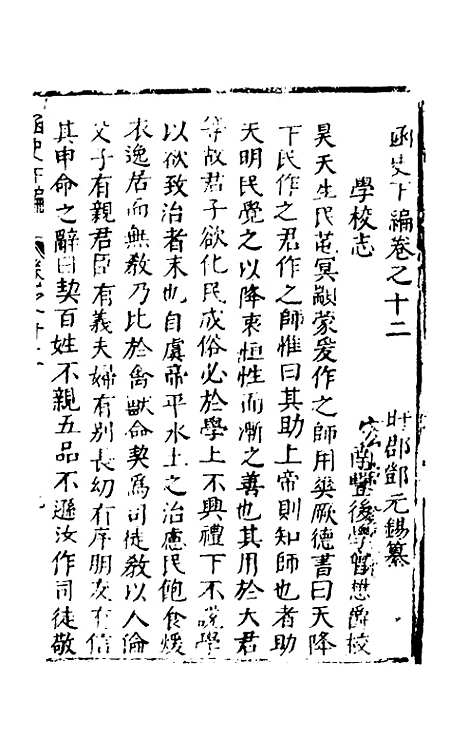 函史下編卷之十二
盱郡鄧元錫纂
學校志
南豐後學曾懋爵校
昊天生民芚冥顓蒙爰作之師用奭厥德書曰天降
下民作之君作之師惟曰其助上帝則知師也者助
天明民覺之以降衷恒性而漸之善也其用於大君
等故君子欲化民成俗必於學上不興禮下不說學
以欲致治者末也自虞帝平水土之治慮民飽食煖
衣逸居而無教乃比於禽獸命契為司徒教以人倫
父子有親君臣有義夫婦有別長幼有序朋友有信
其申命之辭曰契百姓不親五品不遜汝作司徒敬
函史下編
卷之十二